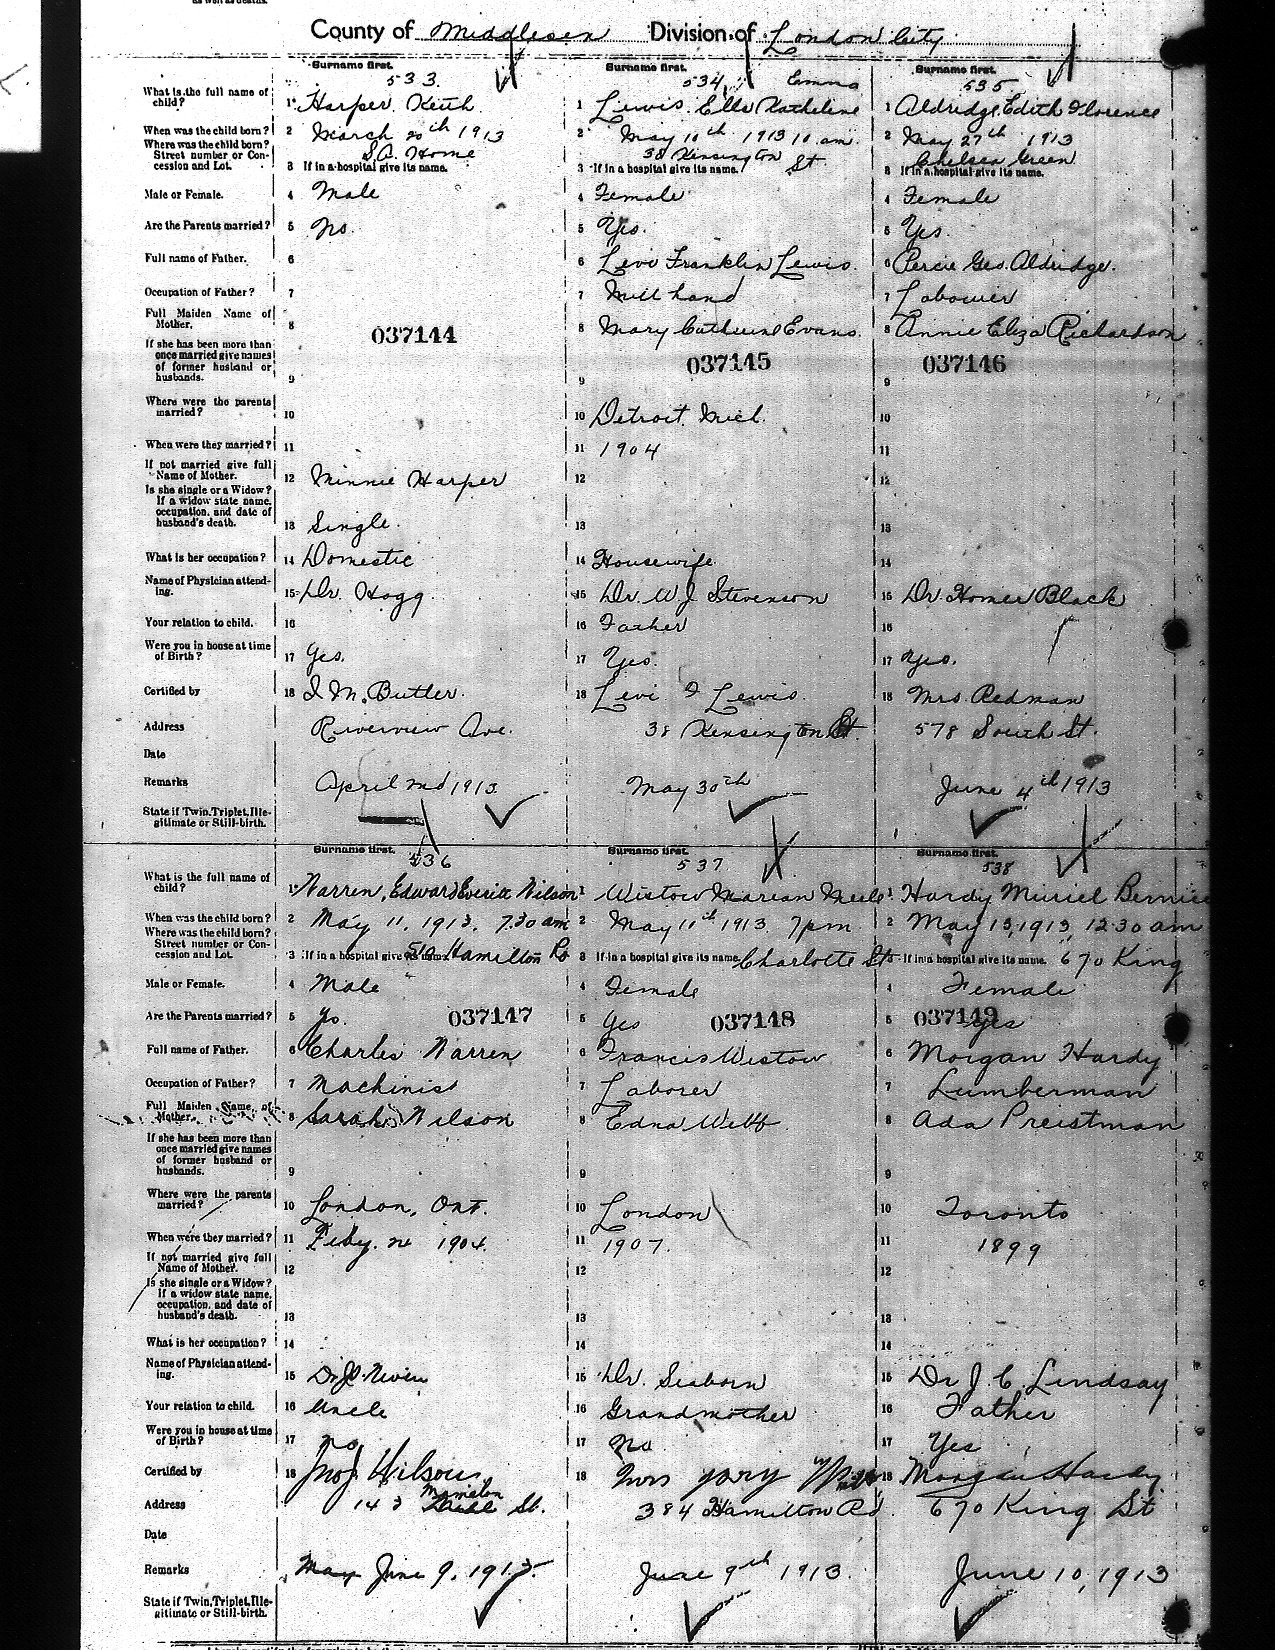 County of Middlesex Division of London City
Surname first. Surname first. Surname first.
533 534 535
What is the full name of child? 1 Harper Keith 1 Lewis Ella Katheline Emma 1 Aldridge Edith Florence
When was the child born? 2 March 20th 1913 2 May 10th 1913 10 am. 2 May 27th 1913
Where was the child born? Street number or Concession and Lot. S.A. Home 38 Kensington St Chelsea Green
3 If in a hospital give its name. 3 If in a hospital give its name. 3 If in a hospital give its name.
Male or Female. 4 Male 4 Female 4 Female
Are the Parents married? 5 No. 5 Yes. 5 Yes.
Full name of Father. 6 6 Levi Franklin Lewis. 6 Percie Geo. Aldridge.
Occupation of Father? 7 7 Mill hand 7 Labourer
Full Maiden Name of Mother. 8 8 Mary Catherine Evans. 8 Annie Eliza Richardson
037144 037145 037146
If she has been more than once married give names of former husband or husbands. 9 9 9
Where were the parents married? 10 10 Detroit Mich. 10
When were they married? 11 11 1904 11
If not married give full Name of Mother. 12 Minnie Harper 12 12
Is she single or a Widow? If a widow state name, occupation, and date of husband's death. 13 Single. 13 13
What is her occupation? 14 Domestic 14 Housewife 14
Name of Physician attending. 15 Dr. Hogg 15 Dr. W J Stevenson 15 Dr Homer Black
Your relation to child. 16 16 Father 16
Were you in house at time of Birth? 17 Yes. 17 Yes. 17 Yes.
Certified by 18 I M. Butler. 18 Levi F Lewis 18 Mrs Redman
Address Riverview Ave. 38 Kensington St. 578 South St.
Date
Remarks April 2nd 1913 May 30th June 4th 1913
State if Twin, Triplet, Illegitimate or Still-birth.
Surname first. Surname first. Surname first.
536 537 538
What is the full name of child? 1 Warren, Edward Everitt Wilson 1 Wistow Marian Merle 1 Hardy Muriel Bernice
When was the child born? 2 May 11, 1913, 7.30 am 2 May 11th 1913 7pm 2 May 13, 1913, 12.30 am
Where was the child born? Street number or Concession and Lot. 3 If in a hospital give its name. 510 Hamilton Rd 3 If in a hospital give its name. Charlotte St 3 If in a hospital give its name. 670 King
Male or Female. 4 Male 4 Female 4 Female
Are the Parents married? 5 Yes. 037147 5 Yes 037148 5 037149 Yes
Full name of Father. 6 Charles Warren 6 Francis Wistow 6 Morgan Hardy
Occupation of Father? 7 Machinist 7 Laborer 7 Lumberman
Full Maiden Name of Mother. 8 Sarah Wilson 8 Edna Webb 8 Ada Preistman
If she has been more than once married give names of former husband or husbands. 9 9 9
Where were the parents married? 10 London, Ont. 10 London 10 Toronto
When were they married? 11 Feby. 1904. 11 1907. 11 1899
If not married give full Name of Mother. 12 12 12
Is she single or a Widow? If a widow state name, occupation, and date of husband's death. 13 13 13
What is her occupation? 14 14 14
Name of Physician attending. 15 Dr Niven 15 Dr. Seaborn 15 Dr J. C. Lindsay
Your relation to child. 16 Uncle 16 Grandmother 16 Father
Were you in house at time of Birth? 17 no 17 No 17 Yes
Certified by 18 Jno J Wilson 18 Mrs 18 Morgan Hardy
Address 143 Mamelon St. 384 Hamilton Rd 670 King St
Date
Remarks May June 9, 1913. June 9th 1913. June 10, 1913
State if Twin, Triplet, Illegitimate or Still-birth.